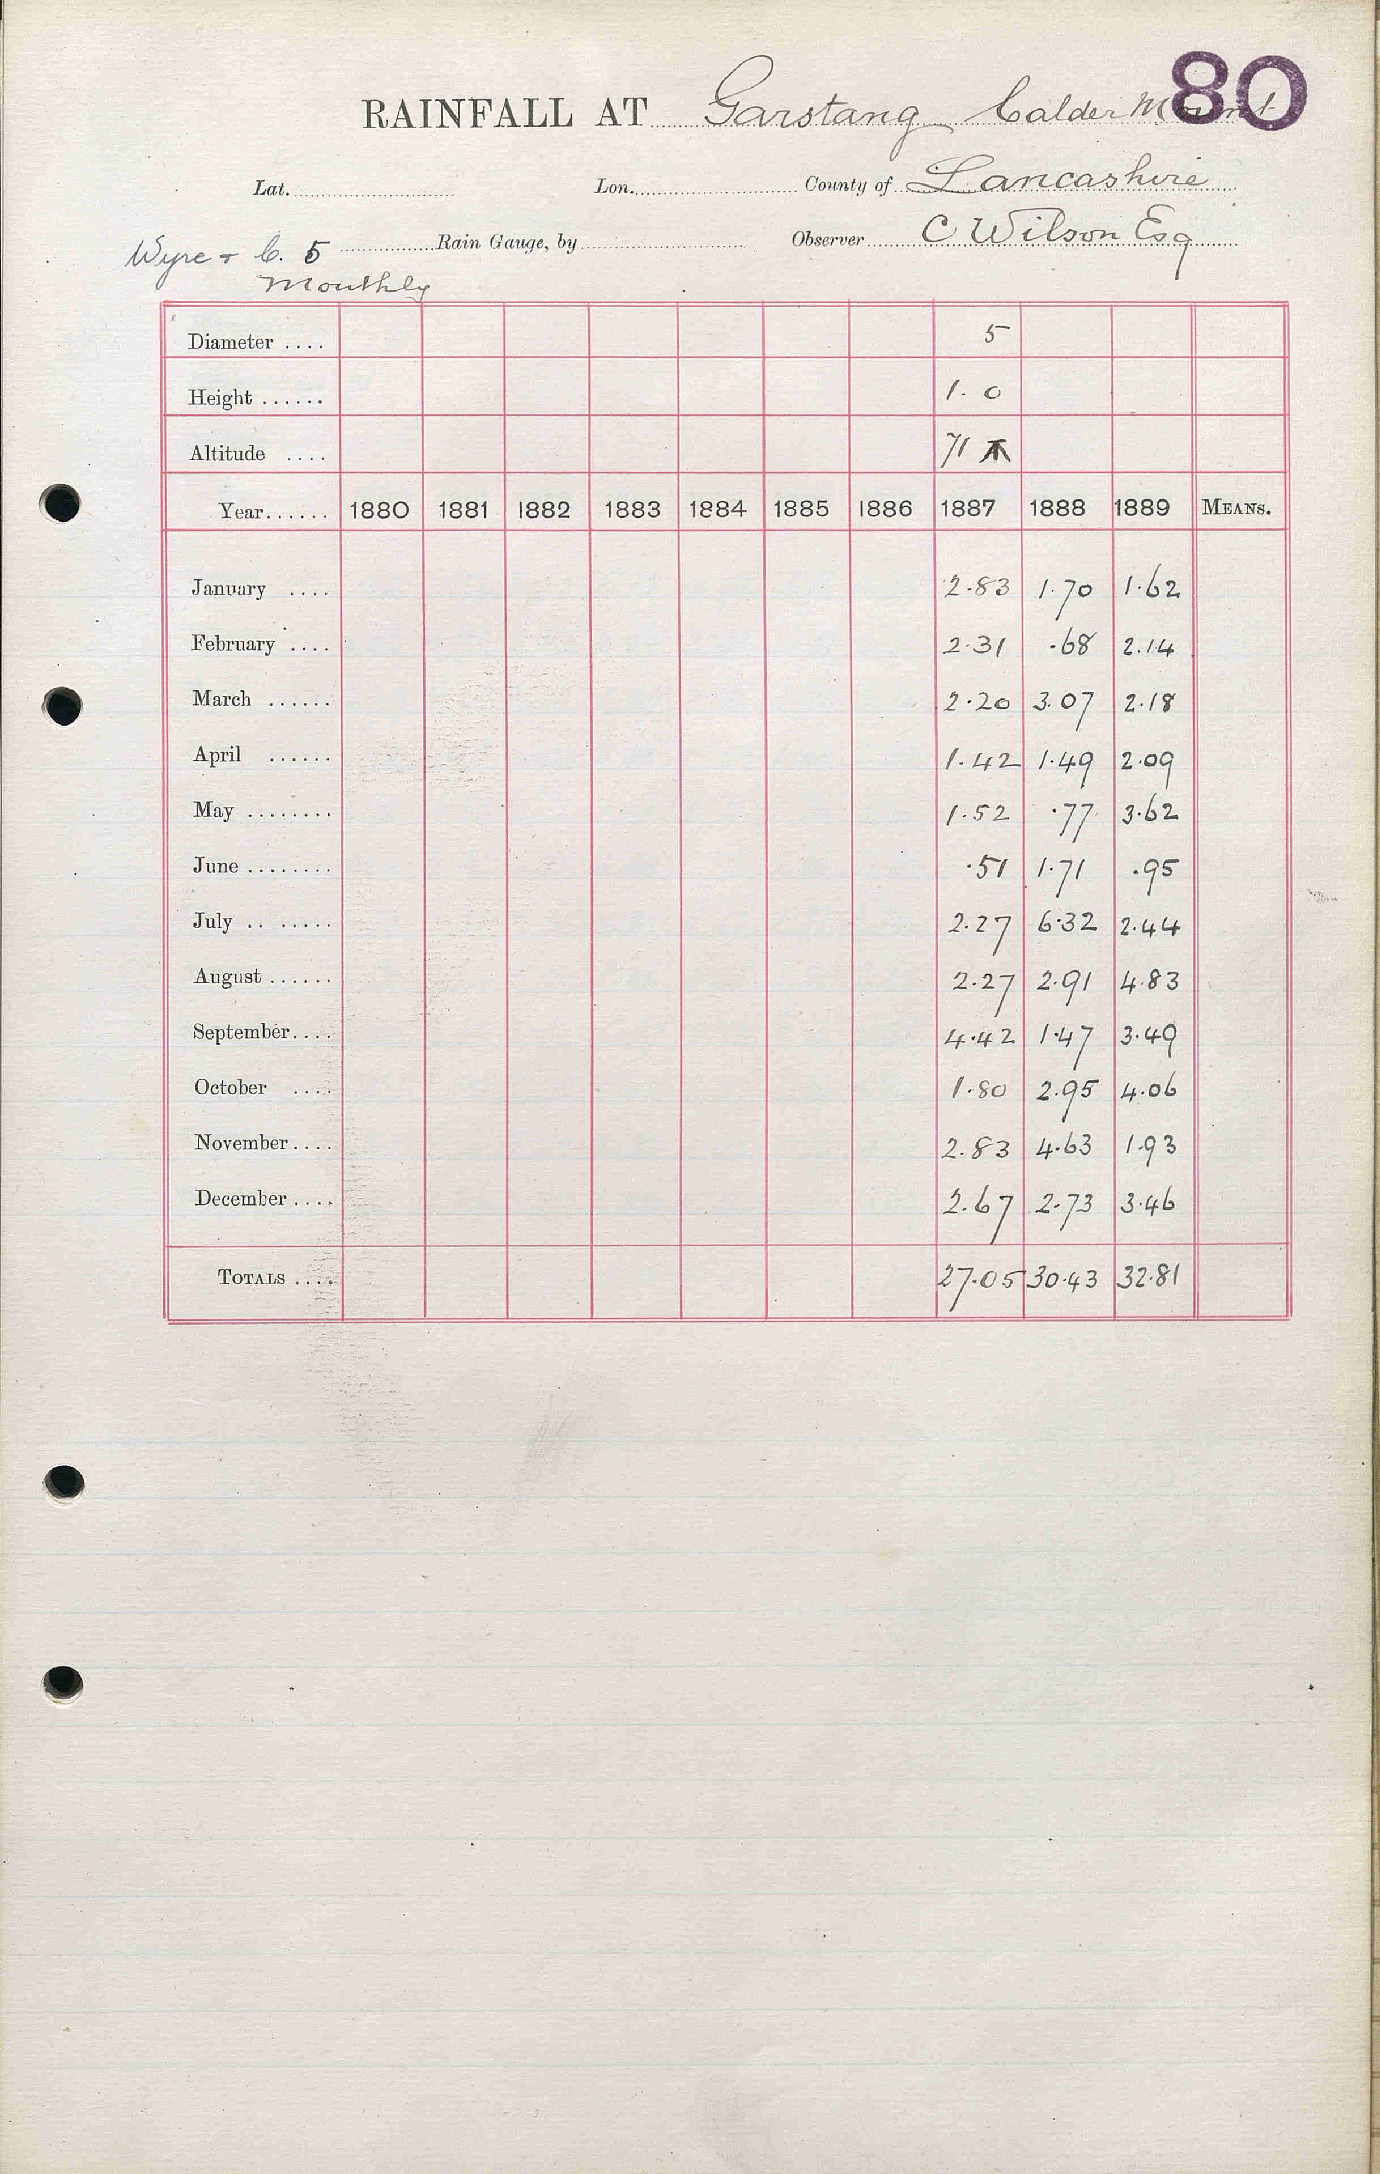 80
RAINFALL AT Garstang Calder Mount
Lat. Lon. County of Lancashire
Wyre & C. 5 Rain Gauge, by Observer C Wilson Esq
Monthly
Diameter .... 5
Height ...... 1. 0
Altitude .... 71
Year...... 1880 1881 1882 1883 1884 1885 1886 1887 1888 1889 MEANS.
January .... 2.83 1.70 1.62
February .... 2.31 .68 2.14
March ...... 2.20 3.07 2.18
April ...... 1.42 1.49 2.09
May ........ 1.52 .77 3.62
June ........ .51 1.71 .95
July .. ..... 2.27 6.32 2.44
August ...... 2.27 2.91 4.83
September.... 4.42 1.47 3.49
October .... 1.80 2.95 4.06
November.... 2.83 4.63 1.93
December.... 2.67 2.73 3.46
TOTALS .... 27.05 30.43 32.81